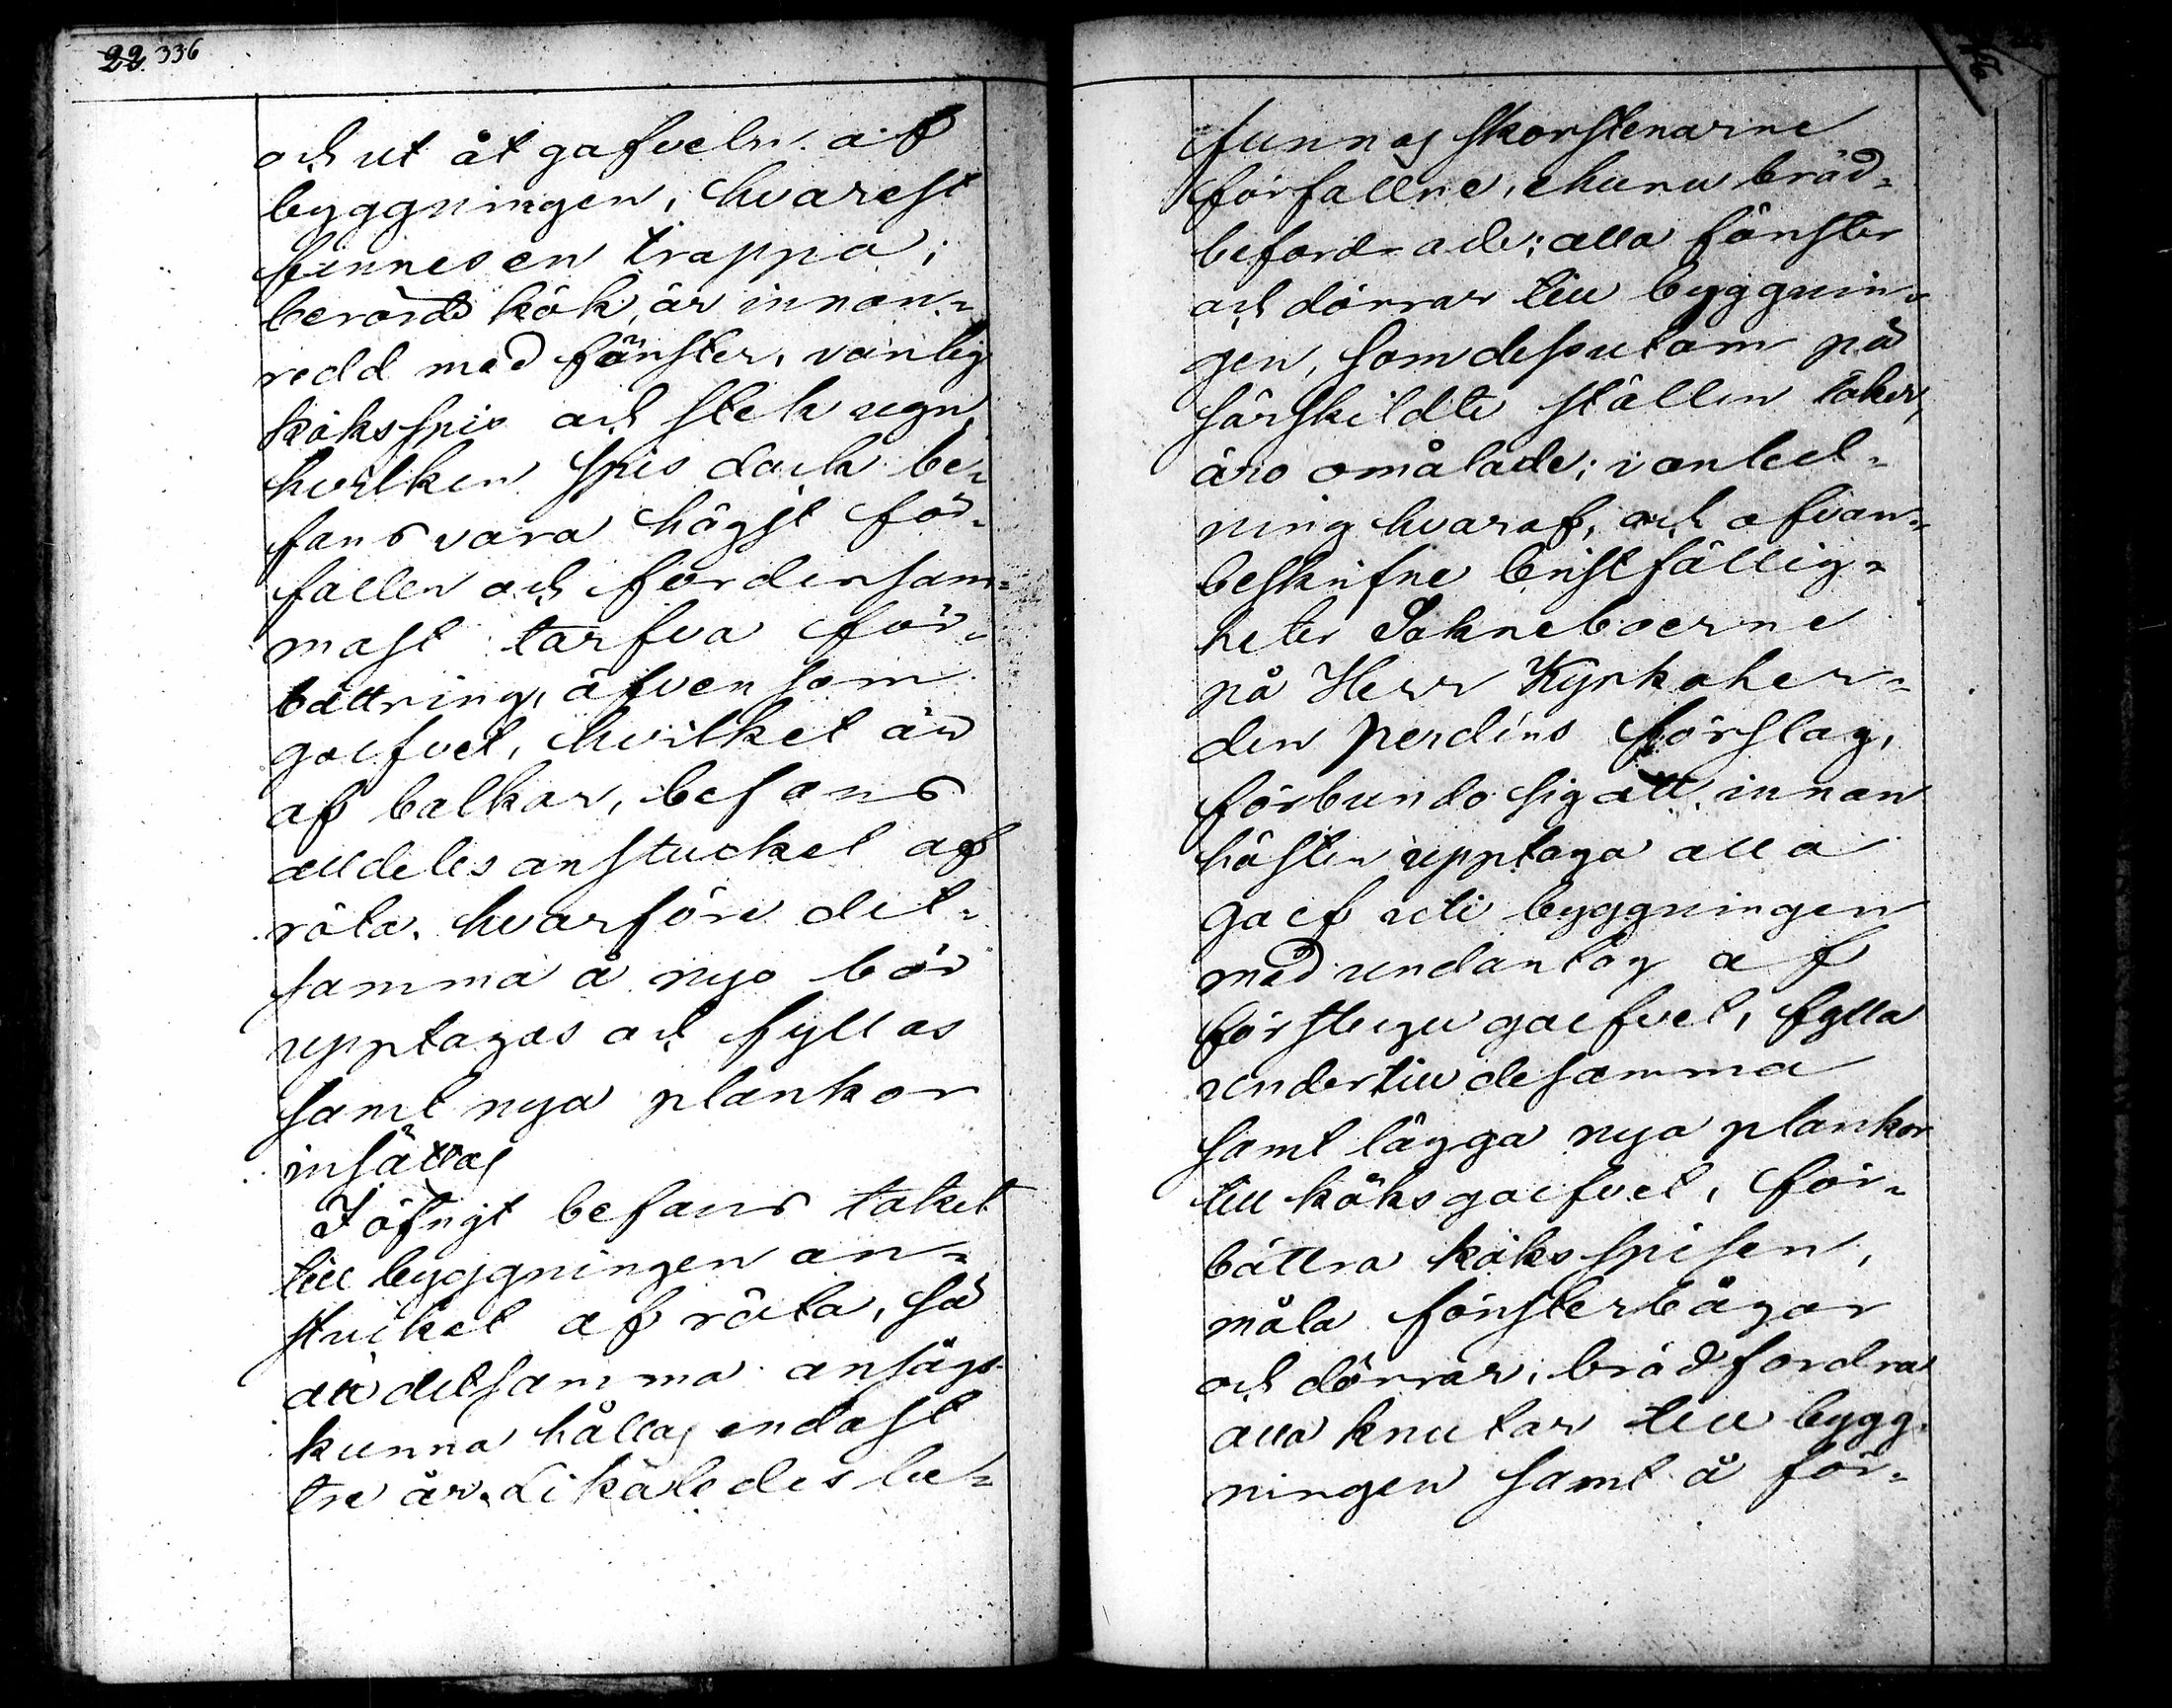 22. 336
och ut åt gafveln af
byggningen, hvarest
finnes en trappa;
berörde kök, är innan-
redd med fönster, vanlig
köksspis och stek ugn,
hvilken spis dock be-
fans vara högst för-
fallen och fordersam-
mast tarfva för-
bättring, äfvensom
golfvet, hvilket är
af balkar, befans
alldeles anstucket af
röta, hvarföre det-
samma å nyo bör
upptagas och fyllas
samt nya plankor
insättas
I öfrigt befans taket
till byggningen an-
stucket af röta, så
att detsamma ansågs
kunna hållas endast
tre år. Likaledes be-
funnos skorstenarne
förfallne, ehuru bräd-
befordrade; alla fönster
och dörrar till byggnin-
gen, som dessutom på
särskildte ställen läker,
äro omålade; i anled-
ning hvaraf, och ofvan-
beskrifne bristfällig-
heter Sokneboerne
på Herr Kyrkoher-
den Perdins förslag,
förbundo sig att innan
hösten upptaga alla
golf uti byggningen
med undantag af
förstugu golfvet, fylla
undertill desamma
samt lägga nya plankor
till köksgolfvet, för-
bättra köksspisen,
måla fönsterbågar
och dörrar, brädfordra
alla knutar till bygg-
ningen samt å för-